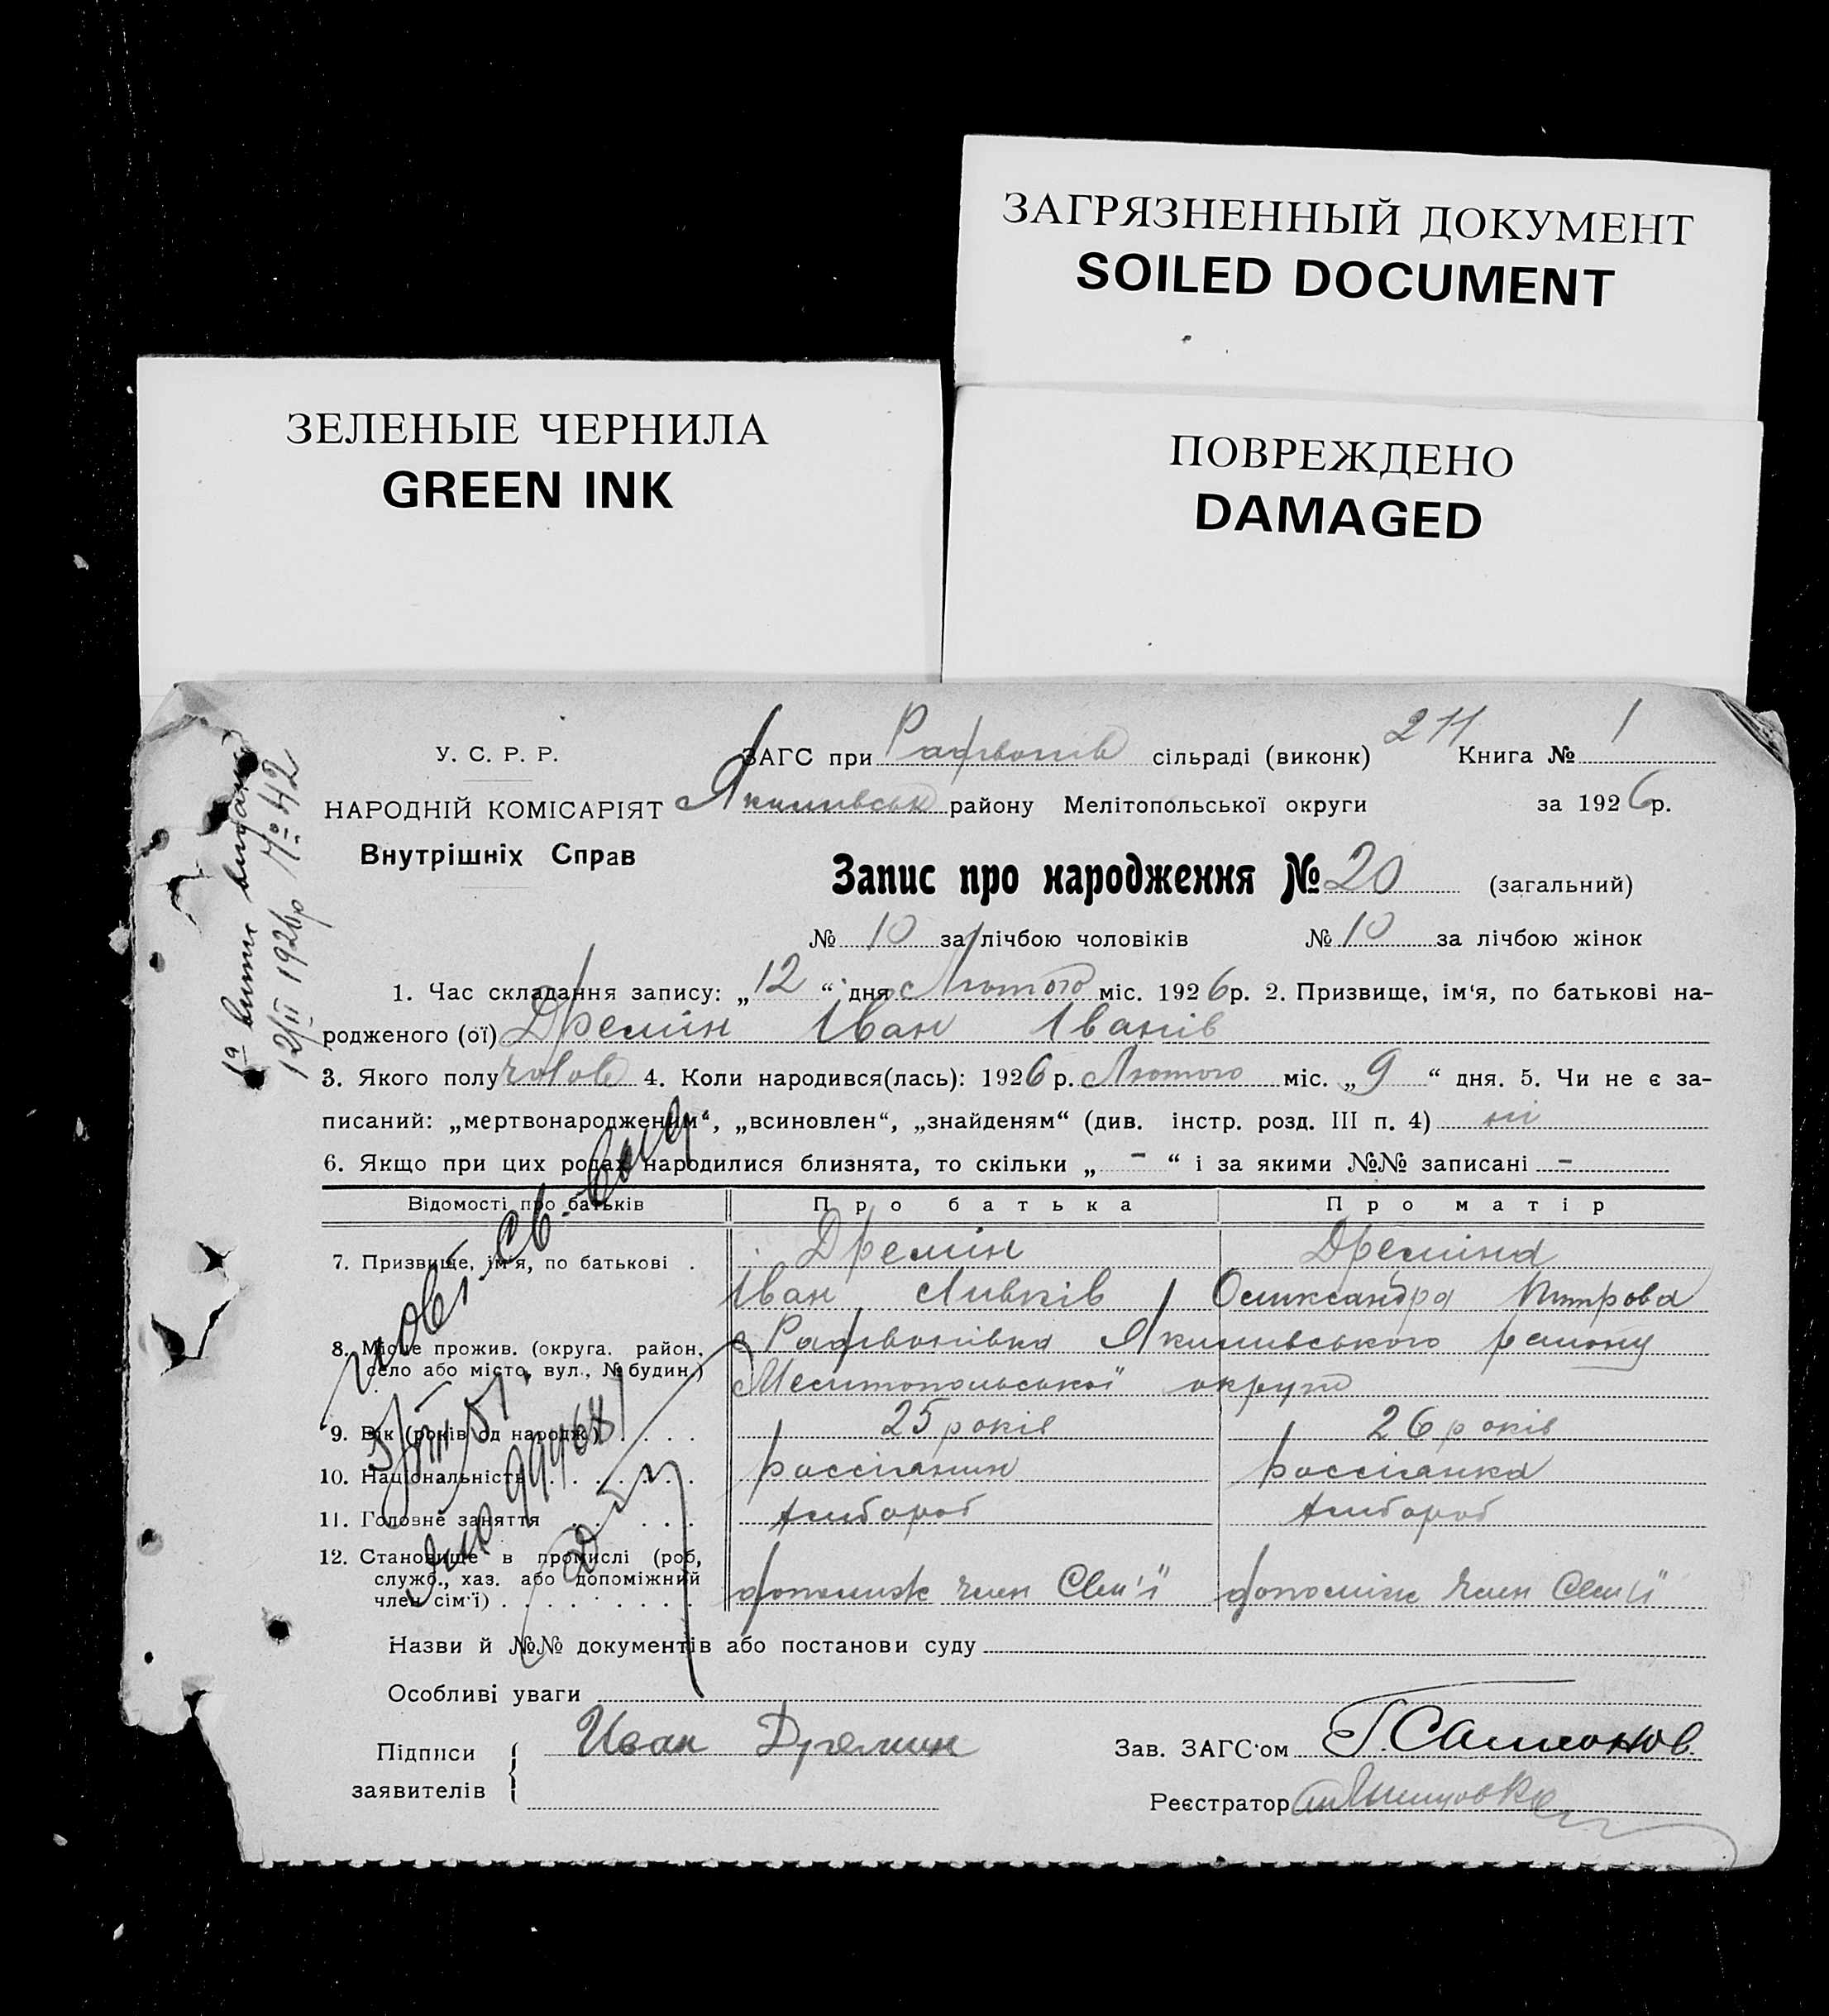 ЗАГРЯЗНЕННЫЙ ДОКУМЕНТ
SOILED DOCUMENT
ЗЕЛЕНЫЕ ЧЕРНИЛА
GREEN INK
ПОВРЕЖДЕНО
DAMAGED
У. С. Р. Р.
НАРОДНІЙ КОМІСАРІЯТ
Внутрішніх Справ
ЗАГС при сільраді (виконк) 211 Книга № 1
Якимівськ району Мелітопольської округи за 1926р.
Запис про народження № 20 (загальний)
№ 10 за лічбою чоловіків № 10 за лічбою жінок
1. Час складання запису: „12“ дня Лютого міс. 1926р. 2. Призвище, ім‘я, по батькові на-
родженого (ої) Дремін Іван Іванів
3. Якого полу чолов 4. Коли народився(лась): 1926р. Лютого міс. „9“ дня. 5. Чи не є за-
писаний: „мертвонародженим“, „всиновлен“, „знайденям“ (див. інстр. розд. III п. 4) ні
6. Якщо при цих родах народилися близнята, то скільки „ - “ і за якими №№ записані -
Відомості про батьків Про батька Про матір
7. Призвище, ім‘я, по батькові . Дремін Дреміна
Іван Олександра
8. Місце прожив. (округа. район, Якимівського району
село або місто, вул., № будин.) Мелітопольської округи
9. Вік (років од народж.) . . . . 25 років 26 років
10. Національність . . . . . . . россіянин россіянка
11. Головне заняття . . . . . хлібороб хлібороб
12. Становище в промислі (роб,
служб., хаз. або допоміжний допоміж член Сем'ї допоміж член Сем'ї
член сім‘ї) . . . . . . . . . .
Назви й №№ документів або постанови суду
Особливі уваги
Підписи Иван Дремин Зав. ЗАГС‘ом Г. Самсонов
заявителів
Реєстратор
1а випис видана
12/II 1926р № 42